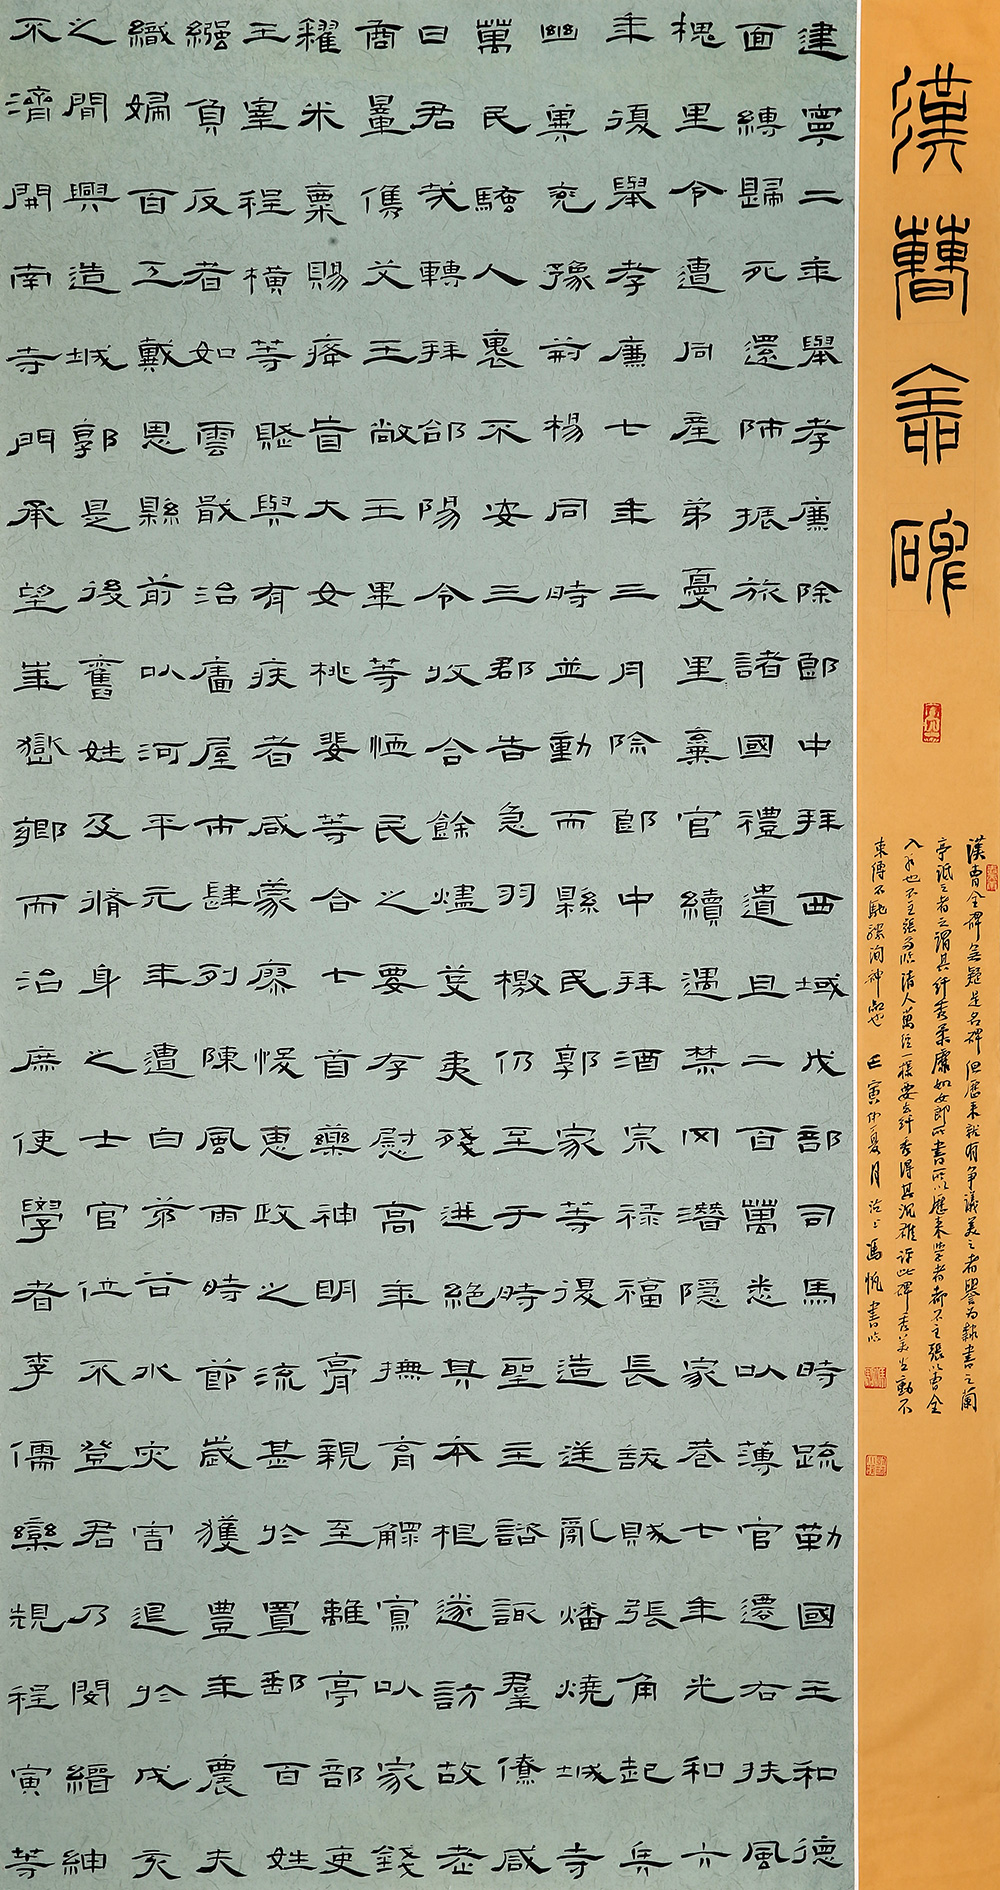 漢曹全碑
漢曹全碑無疑是名碑但歷來就有爭議美之者譽為隸書之蘭
亭詆之者云謂其纤秀柔靡如女郎所書所以歷來学者都不主張以曹全
入手也不主張多临清人萬經一樣要去纤秀得其沉雄评此碑秀美生動不
束缚不馳骤洵神品也 壬寅仲夏月 馮帆書临
建寧二年舉孝廉除郎中拜西域戊部司馬時疏勒國王和德
面縛歸死還師振旅諸國禮遺且二百萬悉以薄官遷右扶風
槐里令遭同產弟憂里棄官續遇禁罔潛隱家巷七年光和六
年復舉孝廉七年三月除郎中拜酒宗祿福長訞賊張角起兵
幽冀兗豫荊楊同時並動而縣民郭家等復造逆亂燔燒城寺
萬民騷人裹不安三郡告急羽檄仍至于時聖主諮諏羣僚咸
曰君哉轉拜郃陽令收合餘燼芟夷殘迸絕其本根遂訪故老
商量儁艾王敞王畢等恤民之要存慰高年撫育鰥寡以家錢
糴米粟賜癃盲大女桃婓等合七首藥神明膏親至離亭部吏
王宰程橫等賑與有疾者咸蒙瘳悛惠政之流甚於置郵百姓
繈負反者如雲戢治廧屋市肆列陳風雨時節歲獲豐年農夫
織婦百工戴恩縣前以河平元年遭白茅谷水灾害退於戊亥
之間興造城郭是後舊姓及脩身之士官位不登君乃閔縉紳
不濟開南寺門承望華嶽鄉而治庶使學者李儒欒規程寅等